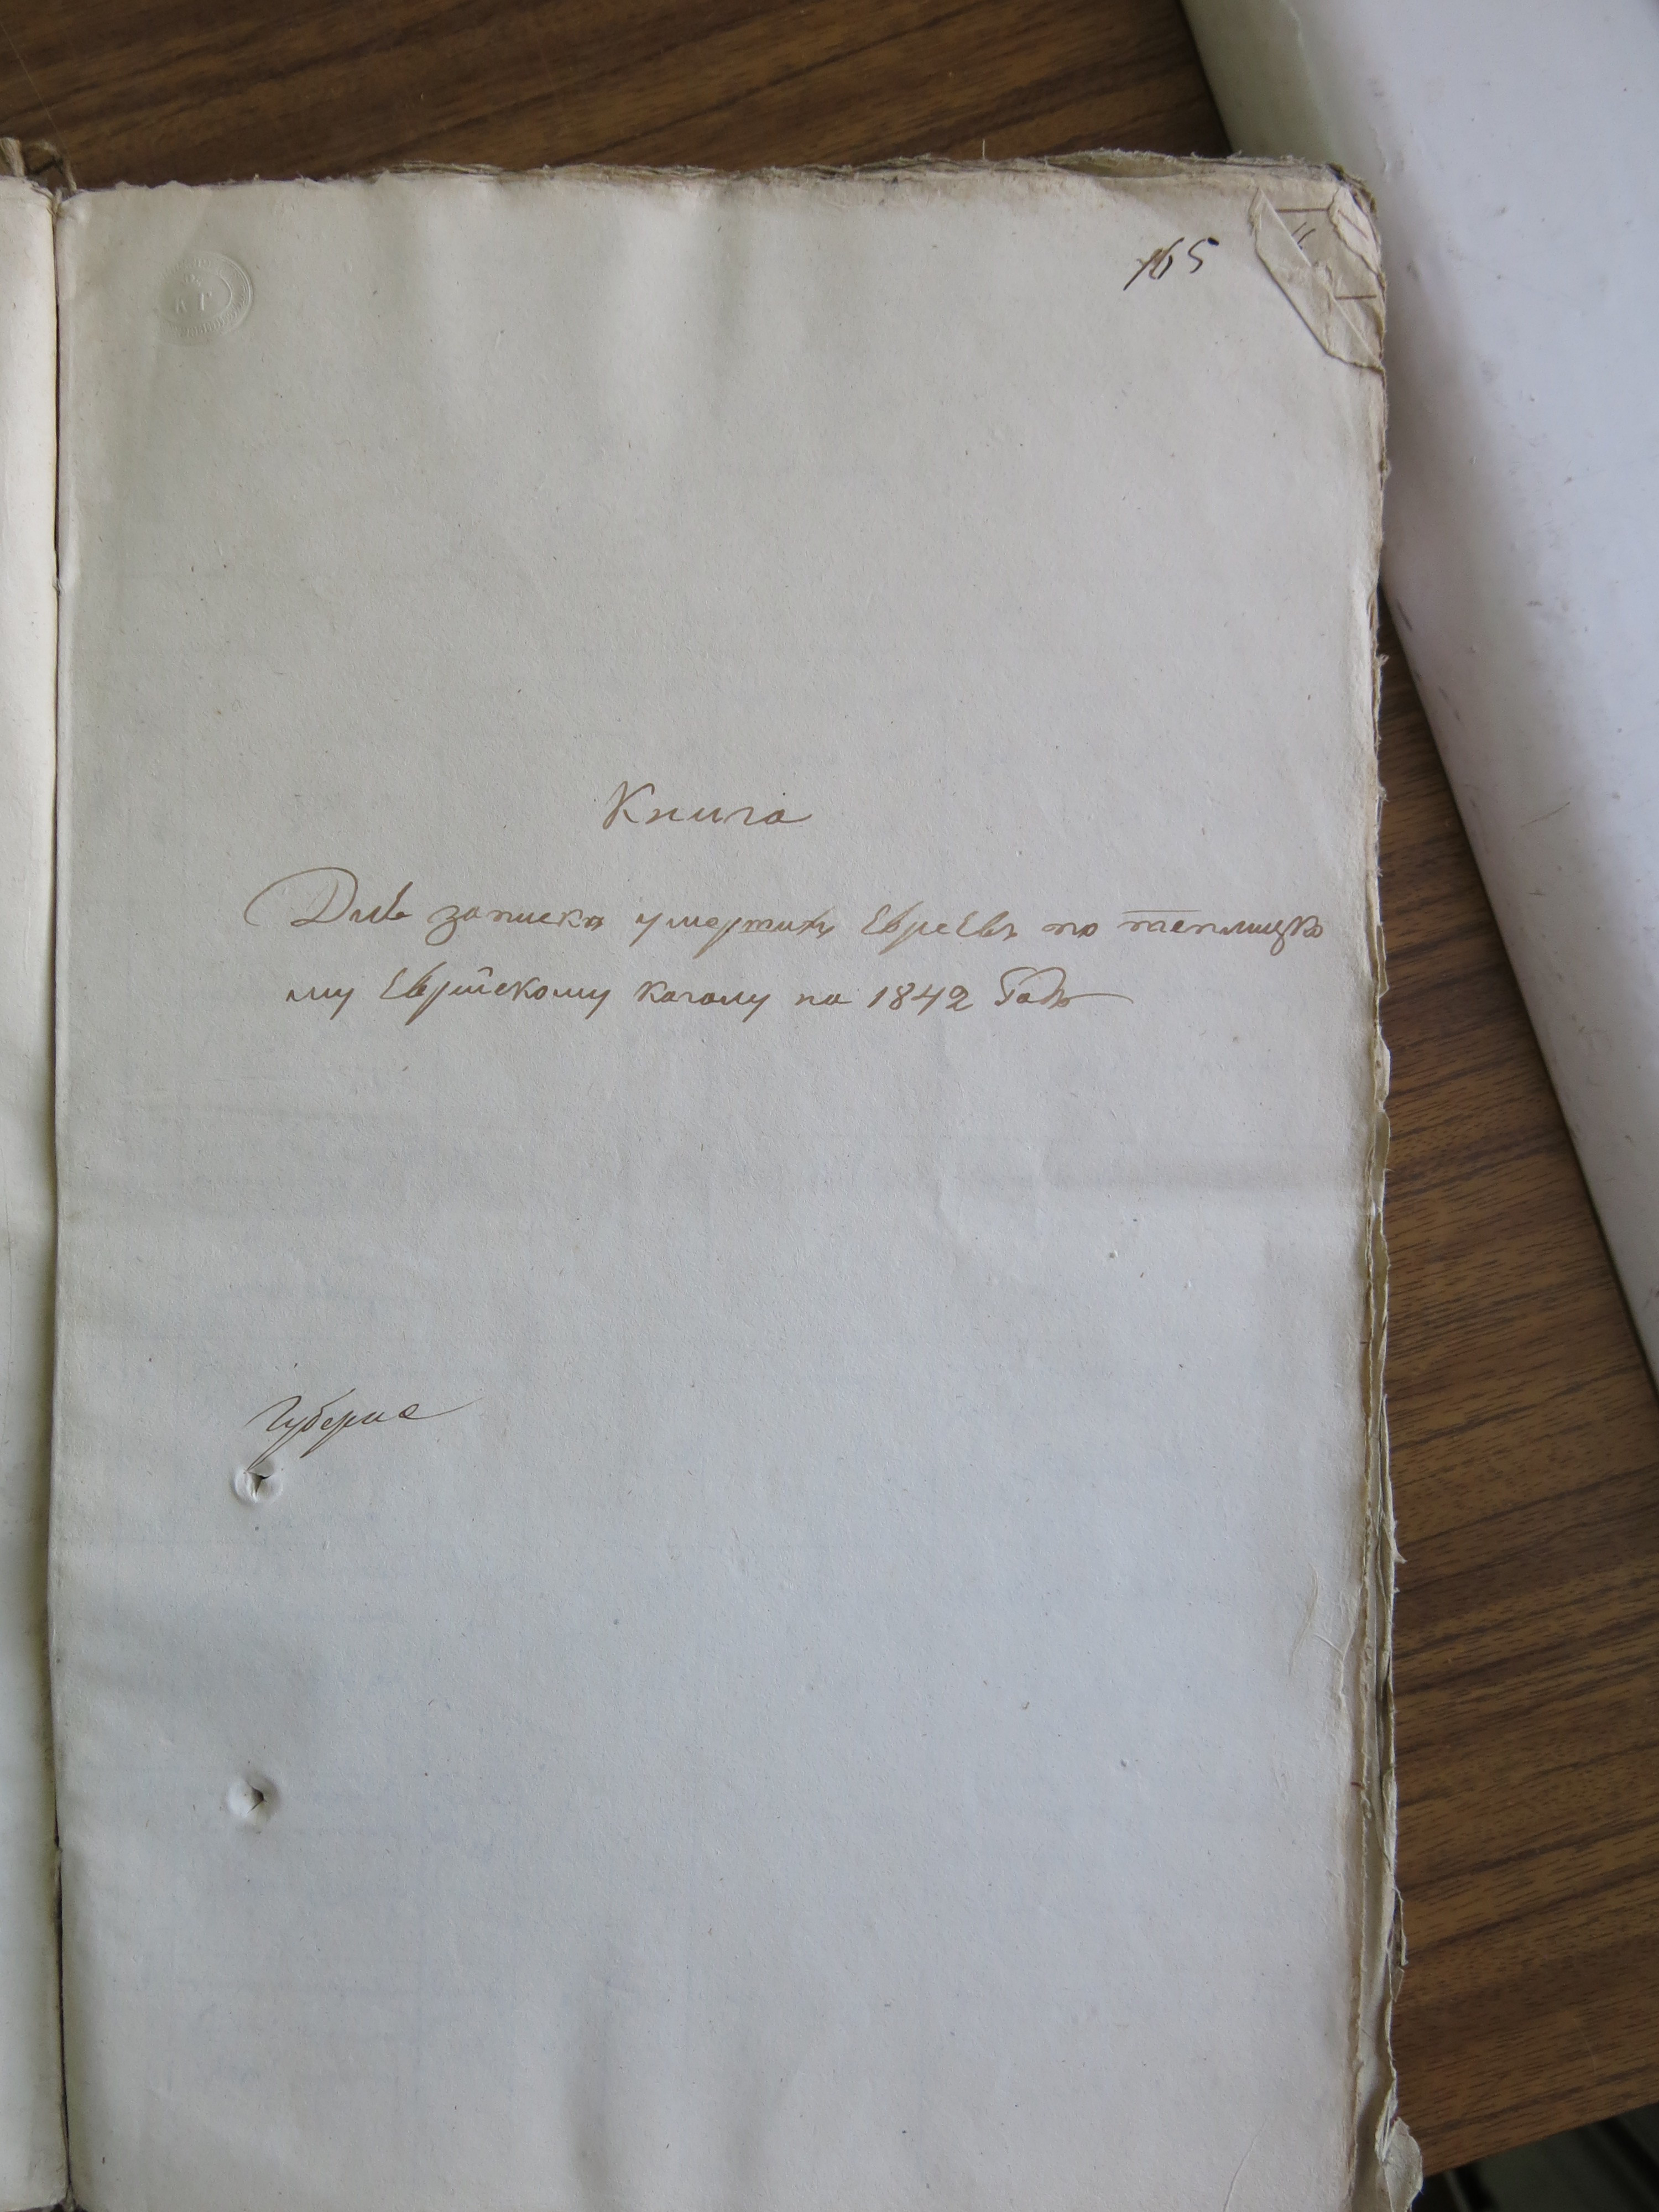 165
Книга
Для записки умерших Евреевъ по теплицко
му Еврейскому кагалу на 1842 Годъ
Губерна